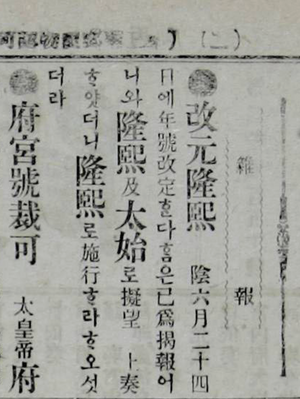 (二)
雜報
改元隆熙 陰六月二十四
日에年號改定ᄒᆞᆫ다ᄒᆞᆷ은已爲揭報어
니와隆熙及太始로擬望上奏
ᄒᆞ얏더니隆熙로施行ᄒᆞ라ᄒᆞ오섯
더라
府宮號裁可 太皇帝府